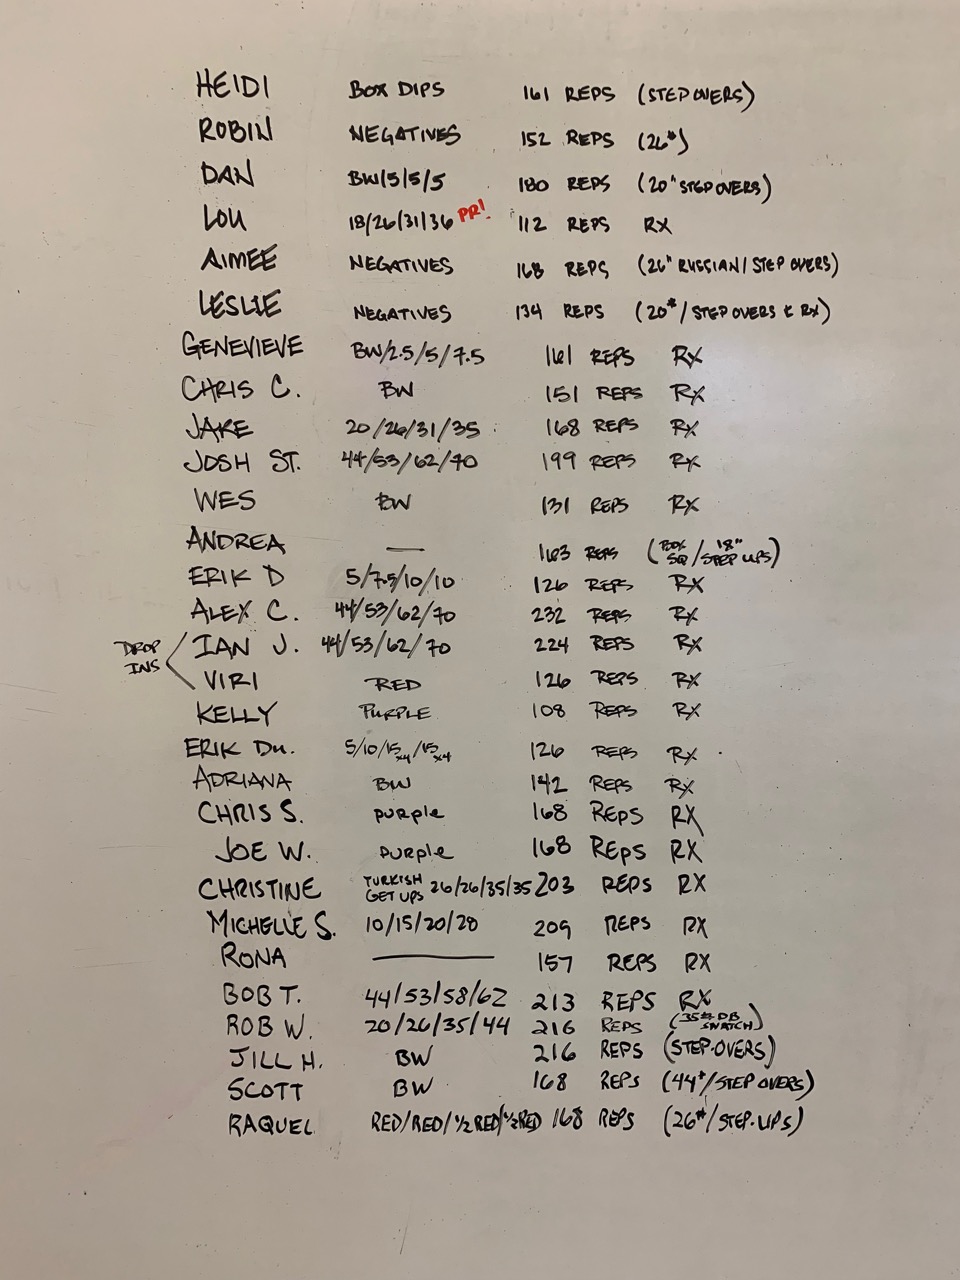 HEIDI BOX DIPS 161 REPS (STEP OVERS)
ROBIN NEGATIVES 152 REPS (26#)
DAN BW/5/5/5 180 REPS (20" STEP OVERS)
LOU 18/26/31/36 PR! 112 REPS RX
AIMEE NEGATIVES 168 REPS (26" RUSSIAN/STEP OVERS)
LESLIE NEGATIVES 134 REPS (20#/STEP OVERS & RX)
GENEVIEVE BW/2.5/5/7.5 161 REPS RX
CHRIS C. BW 151 REPS RX
JAKE 20/26/31/35 168 REPS RX
JOSH ST. 44/53/62/70 199 REPS RX
WES BW 131 REPS RX
ANDREA — 163 REPS (BOX SQ/18" STEP UPS)
ERIK D 5/7.5/10/10 126 REPS RX
ALEX C. 44/53/62/70 232 REPS RX
DROP INS IAN J. 44/53/62/70 224 REPS RX
VIRI RED 126 REPS RX
KELLY PURPLE 108 REPS RX
ERIK DU. 5/10/15x4/15x4 126 REPS RX
ADRIANA BW 142 REPS RX
CHRIS S. PURPLE 168 REPS RX
JOE W. PURPLE 168 REPS RX
CHRISTINE TURKISH GET UPS 26/26/35/35 203 REPS RX
MICHELLE S. 10/15/20/28 209 REPS RX
RONA — 157 REPS RX
BOB T. 44/53/58/62 213 REPS RX
ROB W. 20/26/35/44 216 REPS (35# DB SNATCH)
JILL H. BW 216 REPS (STEP-OVERS)
SCOTT BW 168 REPS (44#/STEP OVERS)
RAQUEL RED/RED/1/2 RED/1/2 RED 168 REPS (26#/STEP-UPS)